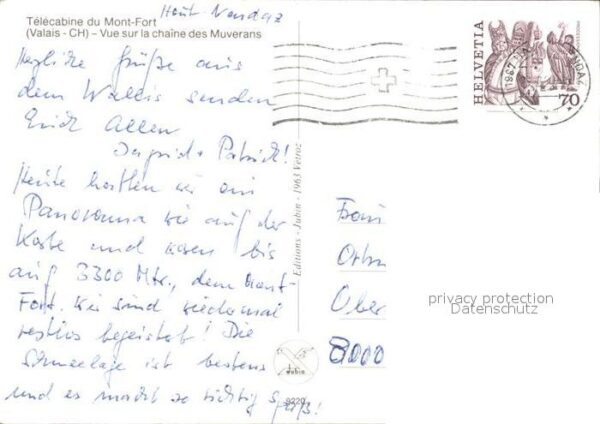 Haute-Nendaz
Télécabine du Mont-Fort
(Valais - CH) – Vue sur la chaîne des Muverans
Herzliche Grüße aus
dem Wallis senden
Euch Allen
Ingrid + Patrick!
Heute hatten wir ein
Panorama wie auf der
Karte und waren bis
auf 3300 Mtr., dem Mont-
Fort. Wir sind wiedermal
restlos begeistert! Die
Schneelage ist bestens
und es macht so richtig Spaß!
Editions - Jubin - 1963 Vetroz
9220
HELVETIA
70
Frau
Ober
8000
privacy protection
Datenschutz